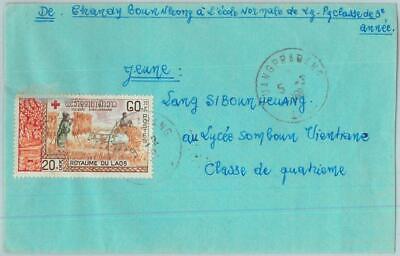 De Chandy Boun Nhong à l'école Normale de Lg-Pg classe de 3e
année.
LUANGPRABANG
5
Jeune:
Lang SIBOUNHEUANG
au Lycée Somboun Vientiane
Classe de quatrième
60
20
ROYAUME DU LAOS